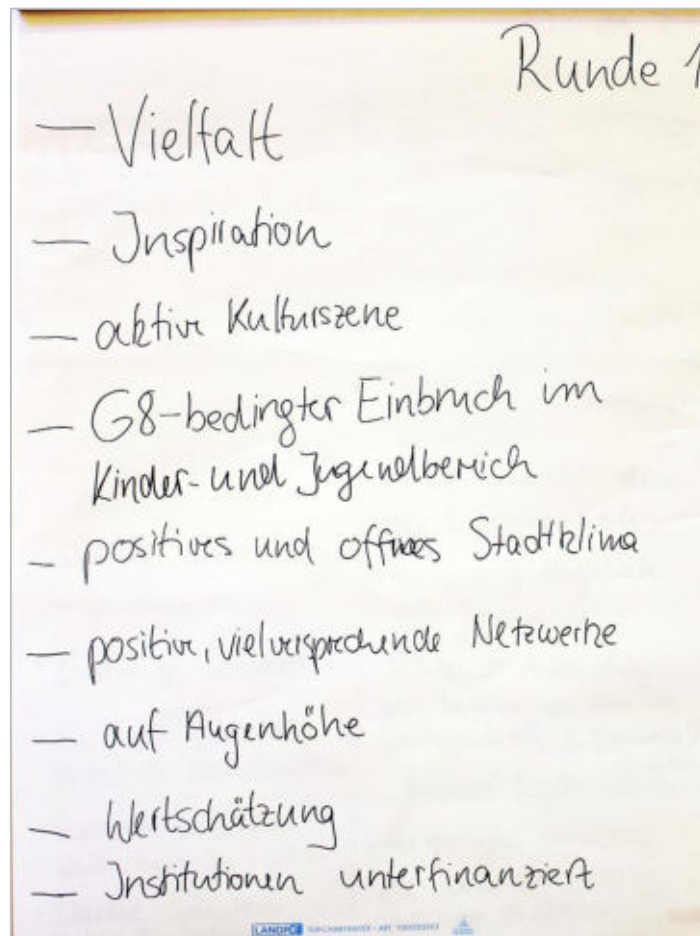 Runde 1
— Vielfalt
— Inspiration
— aktive Kulturszene
— G8-bedingter Einbruch im
Kinder- und Jugendbereich
— positives und offenes Stadtklima
— positive, vielversprechende Netzwerke
— auf Augenhöhe
— Wertschätzung
— Institutionen unterfinanziert